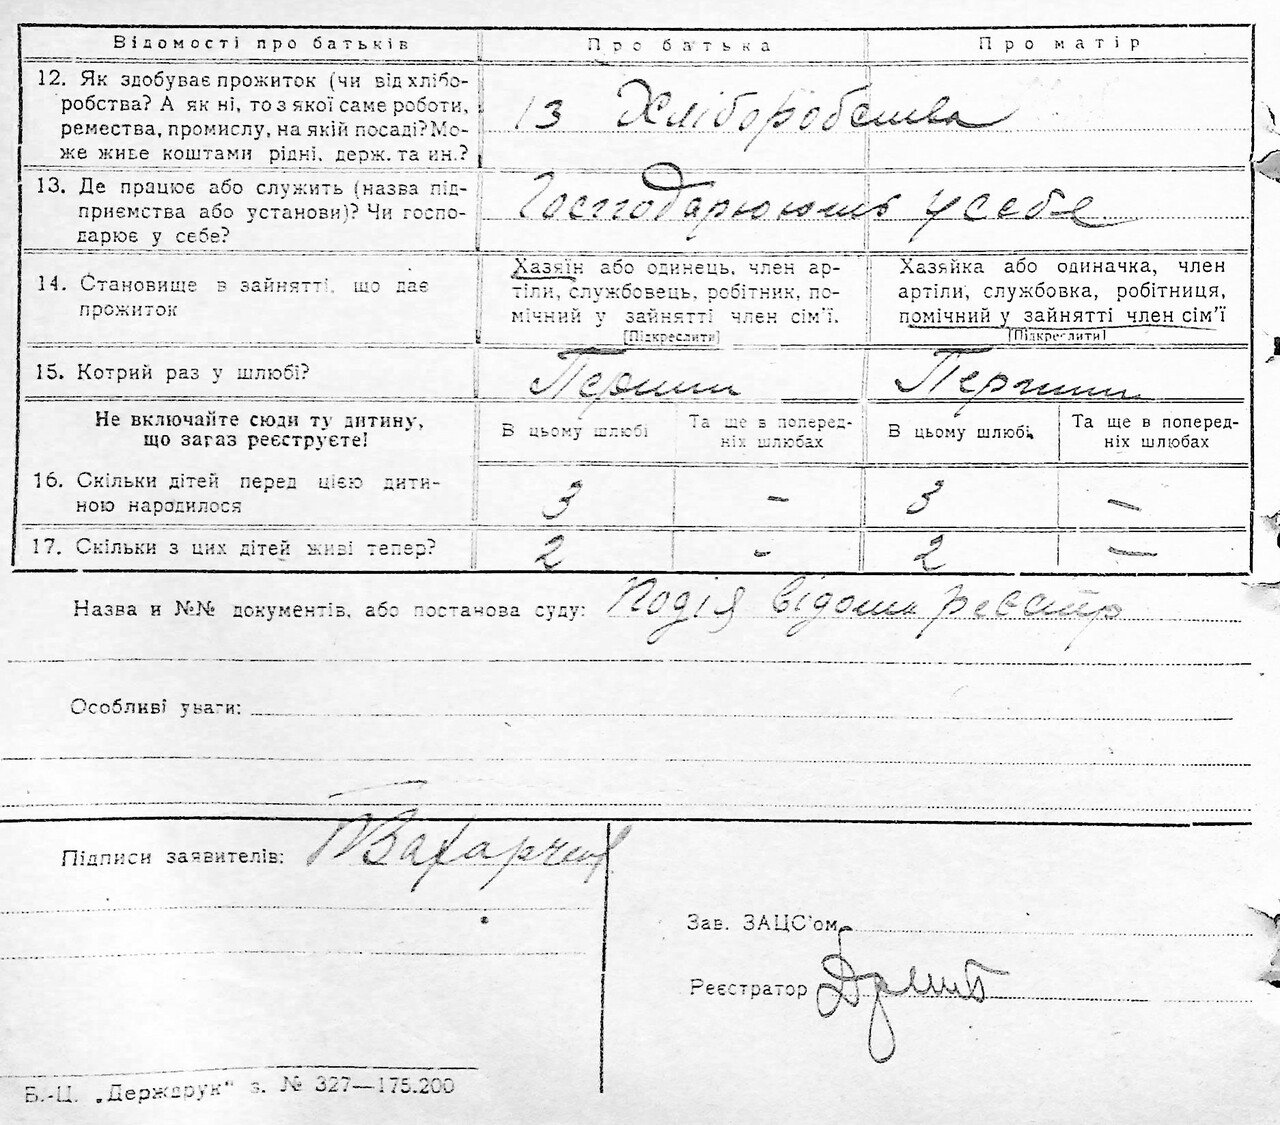 Відомості про батьків Про батька Про матір
12. Як здобуває прожиток (чи від хлібо-
робства? А як ні, то з якої саме роботи,
ремества, промислу, на якій посаді? Мо-
же живе коштами рідні, держ. та ин.?
Із Хліборобства
13. Де працює або служить (назва під-
приємства або установи)? Чи госпо-
дарює у себе?
Господарюють у себе
14. Становище в зайнятті, що дає
прожиток
Хазяїн або одинець, член ар-
тілі, службовець, робітник, по-
мічний у зайнятті член сім'ї.
[Підкреслити]
Хазяйка або одиначка, член
артіли, службовка, робітниця,
помічний у зайнятті член сім'ї
[Підкреслити]
15. Котрий раз у шлюбі? Перший Перший
Не включайте сюди ту дитину,
що зараз реєструєте!
В цьому шлюбі
Та ще в поперед-
ніх шлюбах
В цьому шлюбі
Та ще в поперед-
ніх шлюбах
16. Скільки дітей перед цією дити-
ною народилося
3 - 3 -
17. Скільки з цих дітей живі тепер? 2 - 2 -
Назва и №№ документів, або постанова суду: Подія відома реєстр
Особливі уваги:
Підписи заявителів:
Зав. ЗАЦС'ом
Реєстратор
Б.-Ц. „Держдрук" з. № 327—175.200